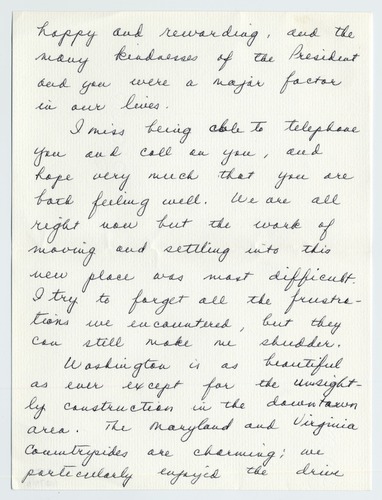 happy and rewarding, and the
many kindnesses of the President
and you were a major factor
in our lives.
I miss being able to telephone
you and call on you, and
hope very much that you are
both feeling well. We are all
right now but the work of
moving and settling into this
new place was most difficult.
I try to forget all the frustra-
tions we encountered, but they
can still make me shudder.
Washington is as beautiful
as ever except for the unsight-
ly construction in the downtown
area. The Maryland and Virginia
countrysides are charming; we
particularly enjoyed the drive